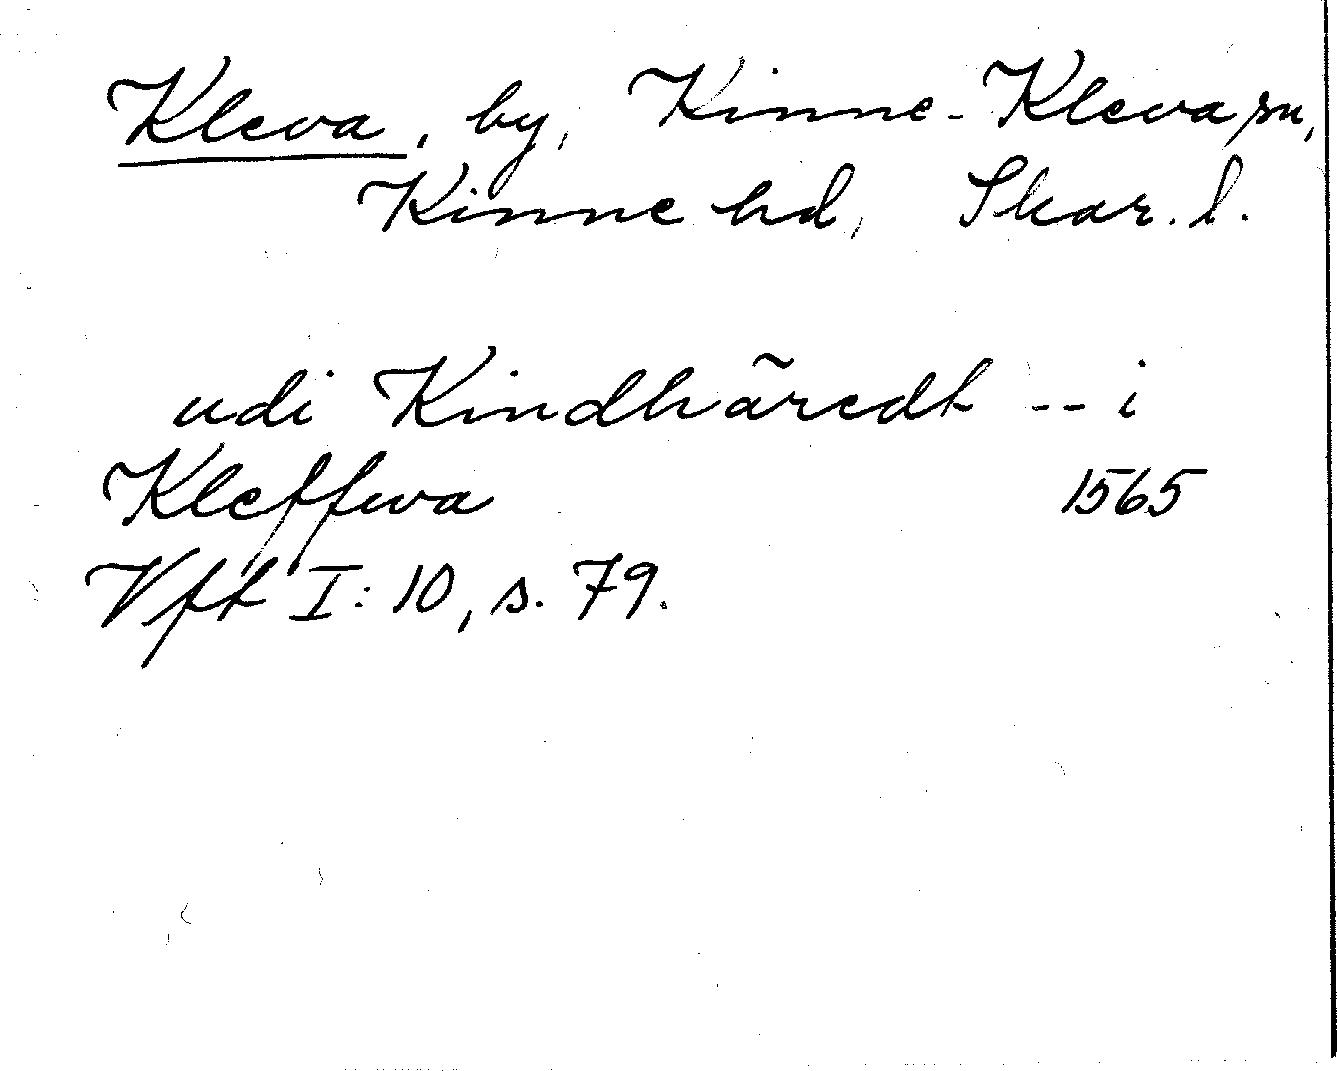 Kleva, by, Kinne-Kleva sn,
Kinne hd, Skar. l.
udi Kindhãredt -- i
Kleffwa 1565
Vftt I: 10, s. 79.